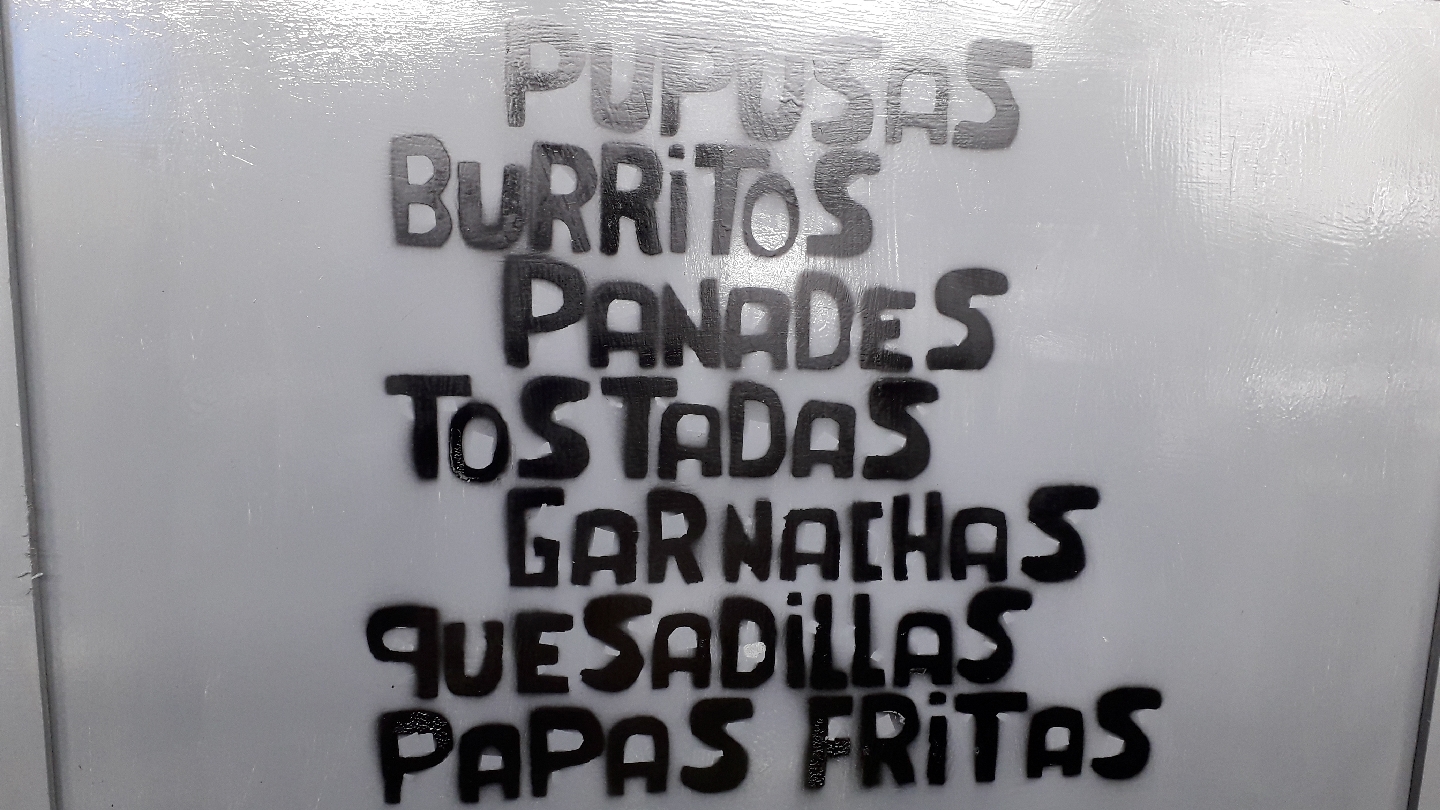 PUPUSAS
BURRiTOS
PANADES
TOSTADAS
GARNACHAS
qUESADiLLAS
PAPAS FRiTAS